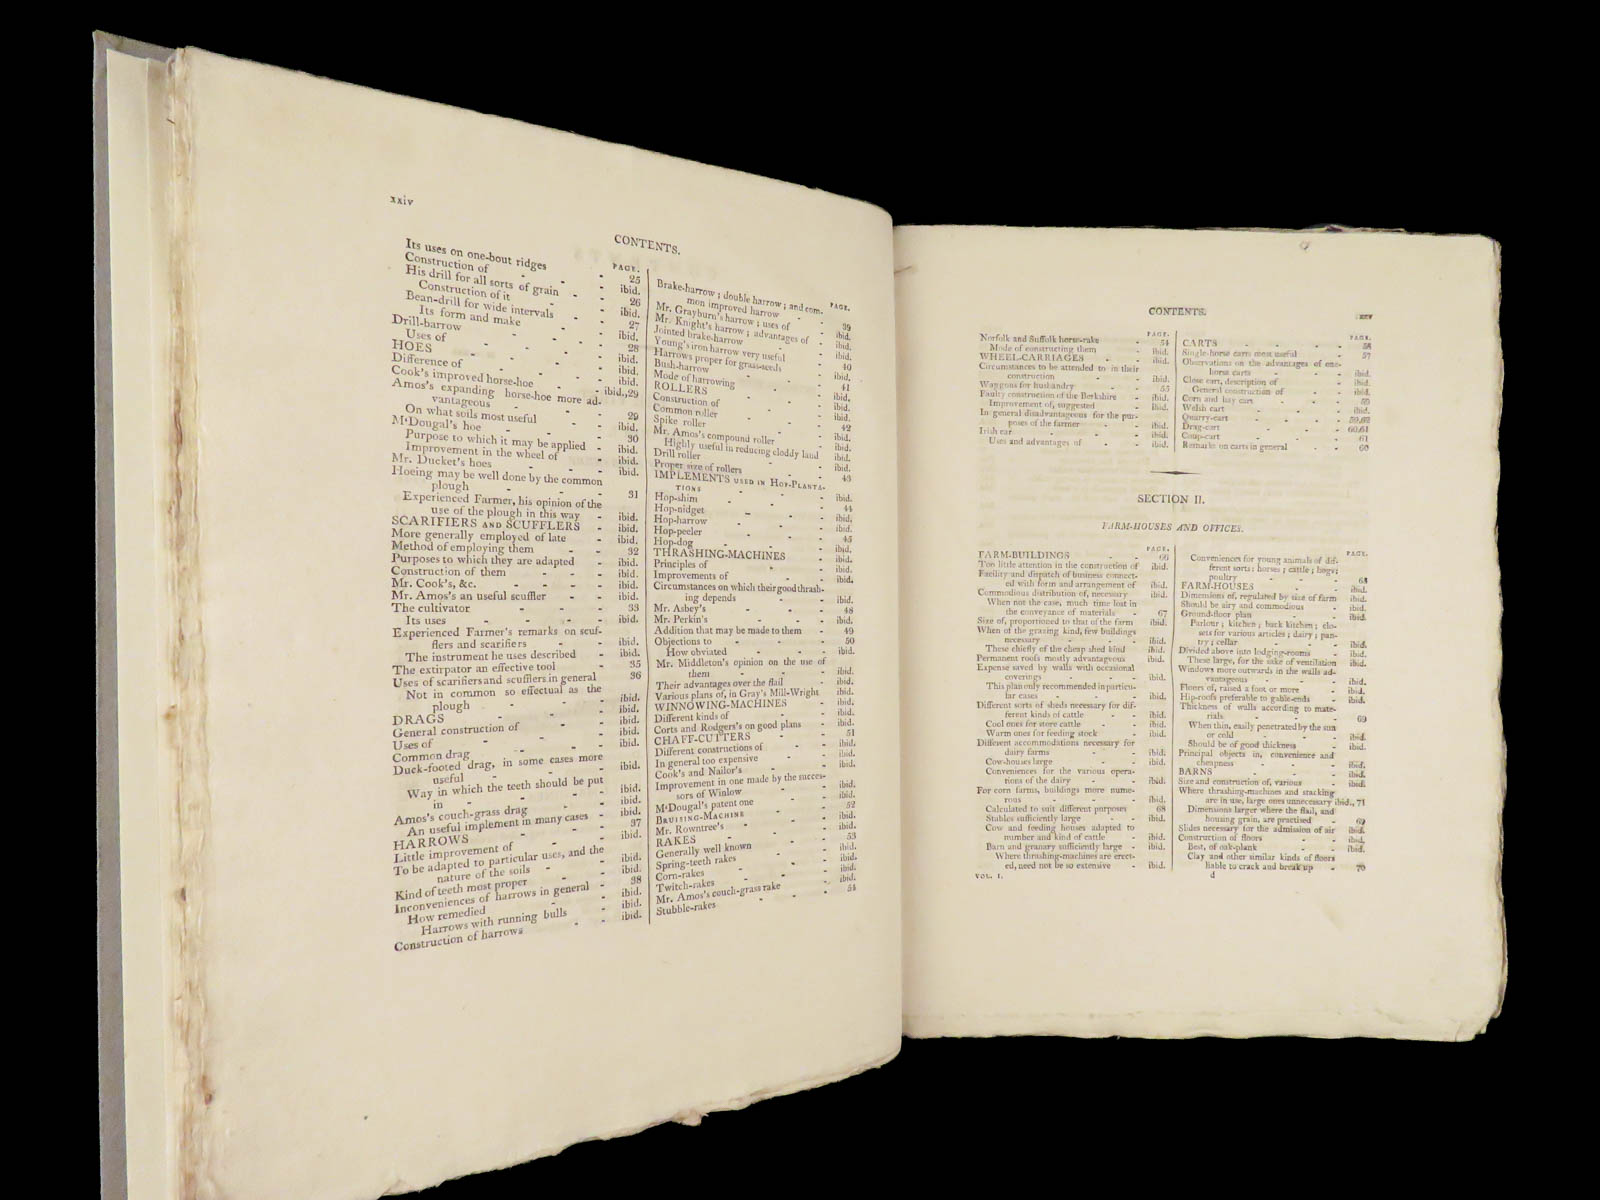 xxiv
CONTENTS.
PAGE.
Its uses on one-bout ridges - 25
Construction of - - ibid.
His drill for all sorts of grain - 26
Construction of it - - ibid.
Bean-drill for wide intervals - 27
Its form and make - - ibid.
Drill-barrow - - - 28
Uses of - - - ibid.
HOES - - - ibid.
Difference of - - - ibid.
Cook's improved horse-hoe - ibid., 29
Amos's expanding horse-hoe more ad-
vantageous - - 29
On what soils most useful - ibid.
M'Dougal's hoe - - 30
Purpose to which it may be applied - ibid.
Improvement in the wheel of - ibid.
Mr. Ducket's hoes - - ibid.
Hoeing may be well done by the common
plough - - - 31
Experienced Farmer, his opinion of the
use of the plough in this way - ibid.
SCARIFIERS AND SCUFFLERS - ibid.
More generally employed of late - ibid.
Method of employing them - - 32
Purposes to which they are adapted - ibid.
Construction of them - - - ibid.
Mr. Cook's, &c. - - - - ibid.
Mr. Amos's an useful scuffler - - ibid.
The cultivator - - - 33
Its uses - - - - ibid.
Experienced Farmer's remarks on scuf-
flers and scarifiers - - ibid.
The instrument he uses described - ibid.
The extirpator an effective tool - 35
Uses of scarifiers and scufflers in general 36
Not in common so effectual as the
plough - - - ibid.
DRAGS - - - ibid.
General construction of - - ibid.
Uses of - - - ibid.
Common drag - - - ibid.
Duck-footed drag, in some cases more
useful - - - ibid.
Way in which the teeth should be put
in - - - - ibid.
Amos's couch-grass drag - - ibid.
An useful implement in many cases - ibid.
HARROWS - - - 37
Little improvement of - - ibid.
To be adapted to particular uses, and the
nature of the soils - - ibid.
Kind of teeth most proper - - ibid.
Inconveniences of harrows in general - 38
How remedied - - ibid.
Harrows with running bulls - ibid.
Construction of harrows - - ibid.
PAGE.
Brake-harrow; double harrow; and com-
mon improved harrow - - 39
Mr. Grayburn's harrow; uses of - ibid.
Mr. Knight's harrow; advantages of - ibid.
Jointed brake-harrow - - ibid.
Young's iron harrow very useful - 40
Harrows proper for grass-seeds - ibid.
Bush-harrow - - - 41
Mode of harrowing - - ibid.
ROLLERS - - - ibid.
Construction of - - ibid.
Common roller - - 42
Spike roller - - - ibid.
Mr. Amos's compound roller - ibid.
Highly useful in reducing cloddy land ibid.
Drill roller - - - ibid.
Proper size of rollers - - 43
IMPLEMENTS USED IN HOP-PLANTA-
TIONS - - - ibid.
Hop-shim - - - 44
Hop-nidget - - - ibid.
Hop-harrow - - - ibid.
Hop-peeler - - - 45
Hop-dog - - - ibid.
THRASHING-MACHINES - ibid.
Principles of - - ibid.
Improvements of - - ibid.
Circumstances on which their good thrash-
ing depends - - - ibid.
Mr. Asbey's - - - 48
Mr. Perkin's - - - ibid.
Addition that may be made to them - 49
Objections to - - - 50
How obviated - - - ibid.
Mr. Middleton's opinion on the use of
them - - - - ibid.
Their advantages over the flail - ibid.
Various plans of, in Gray's Mill-Wright ibid.
WINNOWING-MACHINES - ibid.
Different kinds of - - ibid.
Corts and Rodgers's on good plans - ibid.
CHAFF-CUTTERS - - 51
Different constructions of - - ibid.
In general too expensive - - ibid.
Cook's and Nailor's - - ibid.
Improvement in one made by the succes-
sors of Winlow - - ibid.
M'Dougal's patent one - - ibid.
BRUISING-MACHINE - - 52
Mr. Rowntree's - - ibid.
RAKES - - - 53
Generally well known - - ibid.
Spring-teeth rakes - - ibid.
Corn-rakes - - - ibid.
Twitch-rakes - - - ibid.
Mr. Amos's couch-grass rake - ibid.
Stubble-rakes - - - 54
CONTENTS.
xxv
PAGE.
Norfolk and Suffolk horse-rake - 54
Mode of constructing them - ibid.
WHEEL-CARRIAGES - - ibid.
Circumstances to be attended to in their
construction - - ibid.
Waggons for husbandry - - 55
Faulty construction of the Berkshire - ibid.
Improvement of, suggested - ibid.
In general disadvantageous for the pur-
poses of the farmer - - ibid.
Irish car - - - - ibid.
Uses and advantages of - - ibid.
PAGE.
CARTS - - - - 56
Single-horse carts most useful - 57
Observations on the advantages of one-
horse carts - - - ibid.
Close cart, description of - ibid.
General construction of - - ibid.
Corn and hay cart - - 59
Welsh cart - - - ibid.
Quarry-cart - - - - 59,62
Drag-cart - - - - 60,61
Coup-cart - - - 61
Remarks on carts in general - - 60
SECTION II.
FARM-HOUSES AND OFFICES.
PAGE.
FARM-BUILDINGS - - 66
Too little attention in the construction of ibid.
Facility and dispatch of business connect-
ed with form and arrangement of ibid.
Commodious distribution of, necessary ibid.
When not the case, much time lost in
the conveyance of materials - 67
Size of, proportioned to that of the farm ibid.
When of the grazing kind, few buildings
necessary - - - ibid.
These chiefly of the cheap shed kind ibid.
Permanent roofs mostly advantageous ibid.
Expense saved by walls with occasional
coverings - - - ibid.
This plan only recommended in particu-
lar cases - - - ibid.
Different sorts of sheds necessary for dif-
ferent kinds of cattle - - ibid.
Cool ones for store cattle - - ibid.
Warm ones for feeding stock - ibid.
Different accommodations necessary for
dairy farms - - ibid.
Cow-houses large - - ibid.
Conveniences for the various opera-
tions of the dairy - - ibid.
For corn farms, buildings more nume-
rous - - - ibid.
Calculated to suit different purposes 68
Stables sufficiently large - - ibid.
Cow and feeding houses adapted to
number and kind of cattle - ibid.
Barn and granary sufficiently large - ibid.
Where thrashing-machines are erect-
ed, need not be so extensive - ibid.
VOL. I.
PAGE.
Conveniences for young animals of dif-
ferent sorts: horses; cattle; hogs;
poultry - - - 68
FARM-HOUSES - - ibid.
Dimensions of, regulated by size of farm ibid.
Should be airy and commodious - ibid.
Ground-floor plan - - ibid.
Parlour; kitchen; back kitchen; clo-
sets for various articles; dairy; pan-
try; cellar - - ibid.
Divided above into lodging-rooms - ibid.
These large, for the sake of ventilation ibid.
Windows more outwards in the walls ad-
vantageous - - - ibid.
Floors of, raised a foot or more - ibid.
Hip-roofs preferable to gable-ends - ibid.
Thickness of walls according to mate-
rials - - - 69
When thin, easily penetrated by the sun
or cold - - - ibid.
Should be of good thickness - ibid.
Principal objects in, convenience and
cheapness - - ibid.
BARNS - - - ibid.
Size and construction of, various - ibid.
Where thrashing-machines and stacking
are in use, large ones unnecessary ibid., 71
Dimensions larger where the flail, and
housing grain, are practised - 69
Slides necessary for the admission of air ibid.
Construction of floors - - ibid.
Best, of oak-plank - - ibid.
Clay and other similar kinds of floors
liable to crack and break up - 70
d